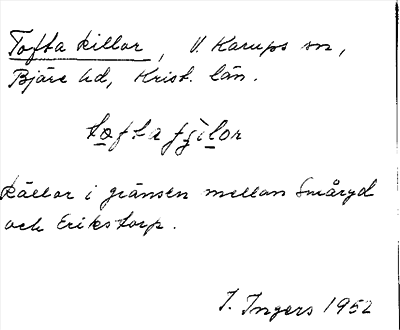 Tofta killor, V. Karups sn,
Bjäre hd, Krist. län.
tofta fjìlor
källor i gränsen mellan Småryd
och Erikstorp.
I. Ingers 1952